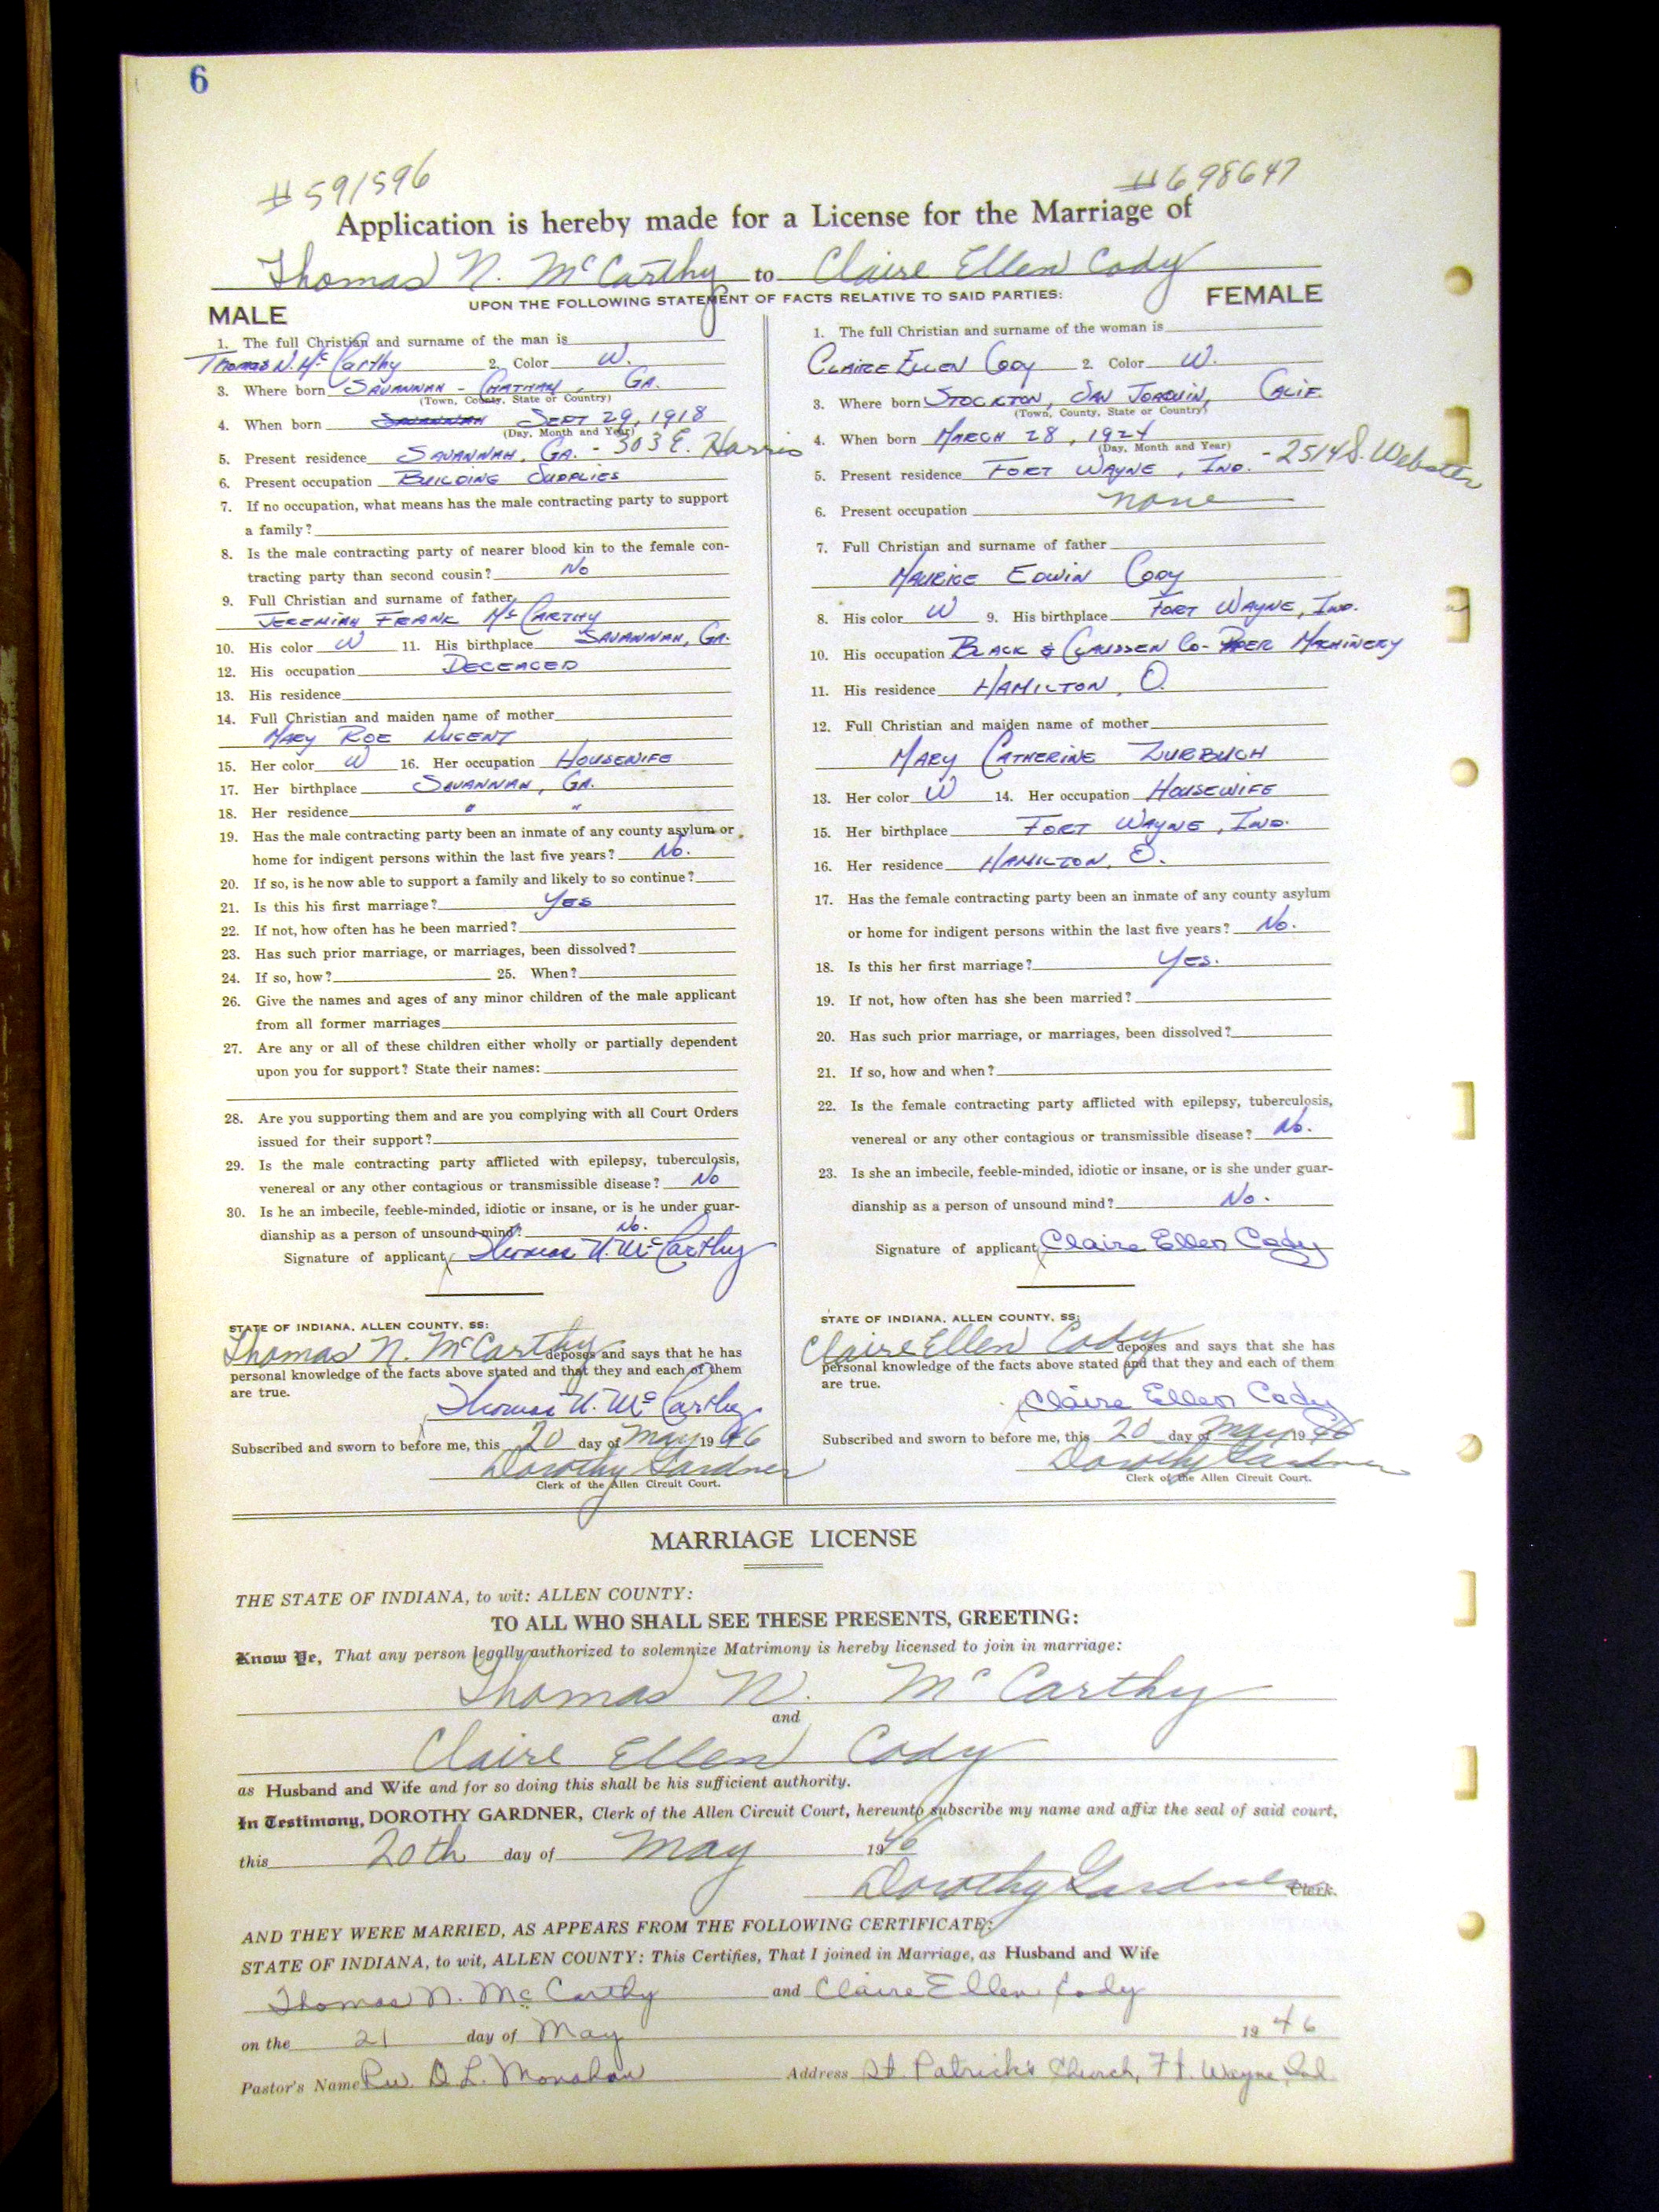 6
#591596 #698647
Application is hereby made for a License for the Marriage of
Thomas N. McCarthy to Claire Ellen Cody
UPON THE FOLLOWING STATEMENT OF FACTS RELATIVE TO SAID PARTIES:
MALE
1. The full Christian and surname of the man is
Thomas N. McCarthy 2. Color W.
3. Where born Savannah - Chatham, Ga.
(Town, County, State or Country)
4. When born Savannah Sept 29, 1918
(Day, Month and Year)
5. Present residence Savannah, Ga. - 303 E. Harris
6. Present occupation Building Supplies
7. If no occupation, what means has the male contracting party to support
a family?
8. Is the male contracting party of nearer blood kin to the female con-
tracting party than second cousin? No
9. Full Christian and surname of father
Jeremiah Frank McCarthy
10. His color W 11. His birthplace Savannah, Ga.
12. His occupation Deceaced
13. His residence
14. Full Christian and maiden name of mother
Mary Roe Nugent
15. Her color W 16. Her occupation Housewife
17. Her birthplace Savannah, Ga.
18. Her residence " "
19. Has the male contracting party been an inmate of any county asylum or
home for indigent persons within the last five years? No.
20. If so, is he now able to support a family and likely to so continue?
21. Is this his first marriage? Yes
22. If not, how often has he been married?
23. Has such prior marriage, or marriages, been dissolved?
24. If so, how? 25. When?
26. Give the names and ages of any minor children of the male applicant
from all former marriages
27. Are any or all of these children either wholly or partially dependent
upon you for support? State their names:
28. Are you supporting them and are you complying with all Court Orders
issued for their support?
29. Is the male contracting party afflicted with epilepsy, tuberculosis,
venereal or any other contagious or transmissible disease? No
30. Is he an imbecile, feeble-minded, idiotic or insane, or is he under guar-
dianship as a person of unsound mind? No.
Signature of applicant Thomas N. McCarthy
STATE OF INDIANA, ALLEN COUNTY, SS:
Thomas N. McCarthy deposes and says that he has
personal knowledge of the facts above stated and that they and each of them
are true.
Thomas N. McCarthy
Subscribed and sworn to before me, this 20 day of May 1946
Dorothy Gardner
Clerk of the Allen Circuit Court.
FEMALE
1. The full Christian and surname of the woman is
Claire Ellen Cody 2. Color W.
3. Where born Stockton, San Joaquin, Calif.
(Town, County, State or Country)
4. When born March 28, 1924
(Day, Month and Year)
5. Present residence Fort Wayne, Ind. - 2514 S. Webster
6. Present occupation none
7. Full Christian and surname of father
Maurice Edwin Cody
8. His color W 9. His birthplace Fort Wayne, Ind.
10. His occupation Black & Clawssen Co- Paper Machinery
11. His residence Hamilton, O.
12. Full Christian and maiden name of mother
Mary Catherine Zurbuch
13. Her color W 14. Her occupation Housewife
15. Her birthplace Fort Wayne, Ind.
16. Her residence Hamilton, O.
17. Has the female contracting party been an inmate of any county asylum
or home for indigent persons within the last five years? No.
18. Is this her first marriage? Yes.
19. If not, how often has she been married?
20. Has such prior marriage, or marriages, been dissolved?
21. If so, how and when?
22. Is the female contracting party afflicted with epilepsy, tuberculosis,
venereal or any other contagious or transmissible disease? No.
23. Is she an imbecile, feeble-minded, idiotic or insane, or is she under guar-
dianship as a person of unsound mind? No.
Signature of applicant Claire Ellen Cody
STATE OF INDIANA, ALLEN COUNTY, SS:
Claire Ellen Cody deposes and says that she has
personal knowledge of the facts above stated and that they and each of them
are true.
Claire Ellen Cody
Subscribed and sworn to before me, this 20 day of May 1946
Dorothy Gardner
Clerk of the Allen Circuit Court.
MARRIAGE LICENSE
THE STATE OF INDIANA, to wit: ALLEN COUNTY:
TO ALL WHO SHALL SEE THESE PRESENTS, GREETING:
Know Ye, That any person legally authorized to solemnize Matrimony is hereby licensed to join in marriage:
Thomas N. McCarthy
and
Claire Ellen Cody
as Husband and Wife and for so doing this shall be his sufficient authority.
In Testimony, DOROTHY GARDNER, Clerk of the Allen Circuit Court, hereunto subscribe my name and affix the seal of said court,
this 20th day of May 1946
Dorothy Gardner Clerk.
AND THEY WERE MARRIED, AS APPEARS FROM THE FOLLOWING CERTIFICATE:
STATE OF INDIANA, to wit, ALLEN COUNTY: This Certifies, That I joined in Marriage, as Husband and Wife
Thomas N. McCarthy and Claire Ellen Cody
on the 21 day of May 1946
Pastor's Name Rev. D. L. Monahan Address St. Patrick's Church, Ft. Wayne, Ind